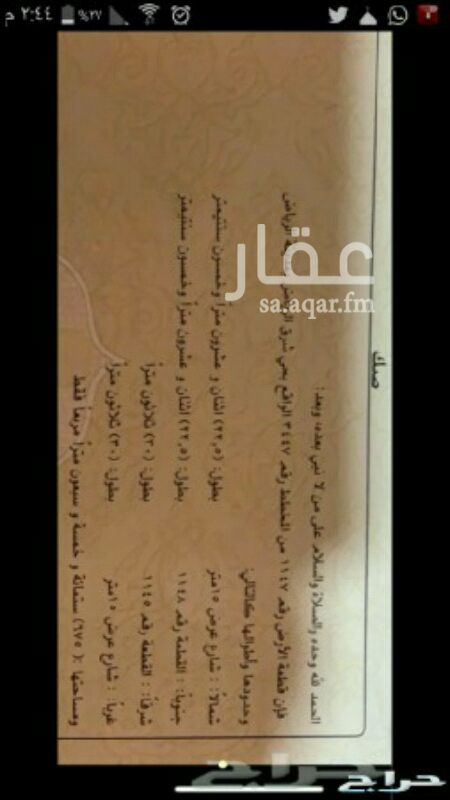 ٢:٤٤ م
٢٧%
صك
الحمد لله وحده والصلاة والسلام على من لا نبي بعده، وبعد:
فإن قطعة الأرض رقم ١١٤٧ من المخطط رقم ٣٤٤٧ الواقع بحي شرق الرياض
وحدودها وأطوالها كالتالي:
شمالاً: : شارع عرض ١٥ متر بطول: (٢٢,٥) اثنان و عشرون متراً وخمسون سنتيمتر
جنوباً: : القطعة رقم ١١٤٨ بطول: (٢٢,٥) اثنان و عشرون متراً وخمسون سنتيمتر
شرقاً: : القطعة رقم ١١٤٥ بطول: (٣٠) ثلاثون متراً
غرباً: : شارع عرض ١٥ متر بطول: (٣٠) ثلاثون متراً
ومساحتها :( ٦٧٥) ستمائة و خمسة و سبعون متراً مربعاً فقط
عقار
sa.aqar.fm
حراج
حراج